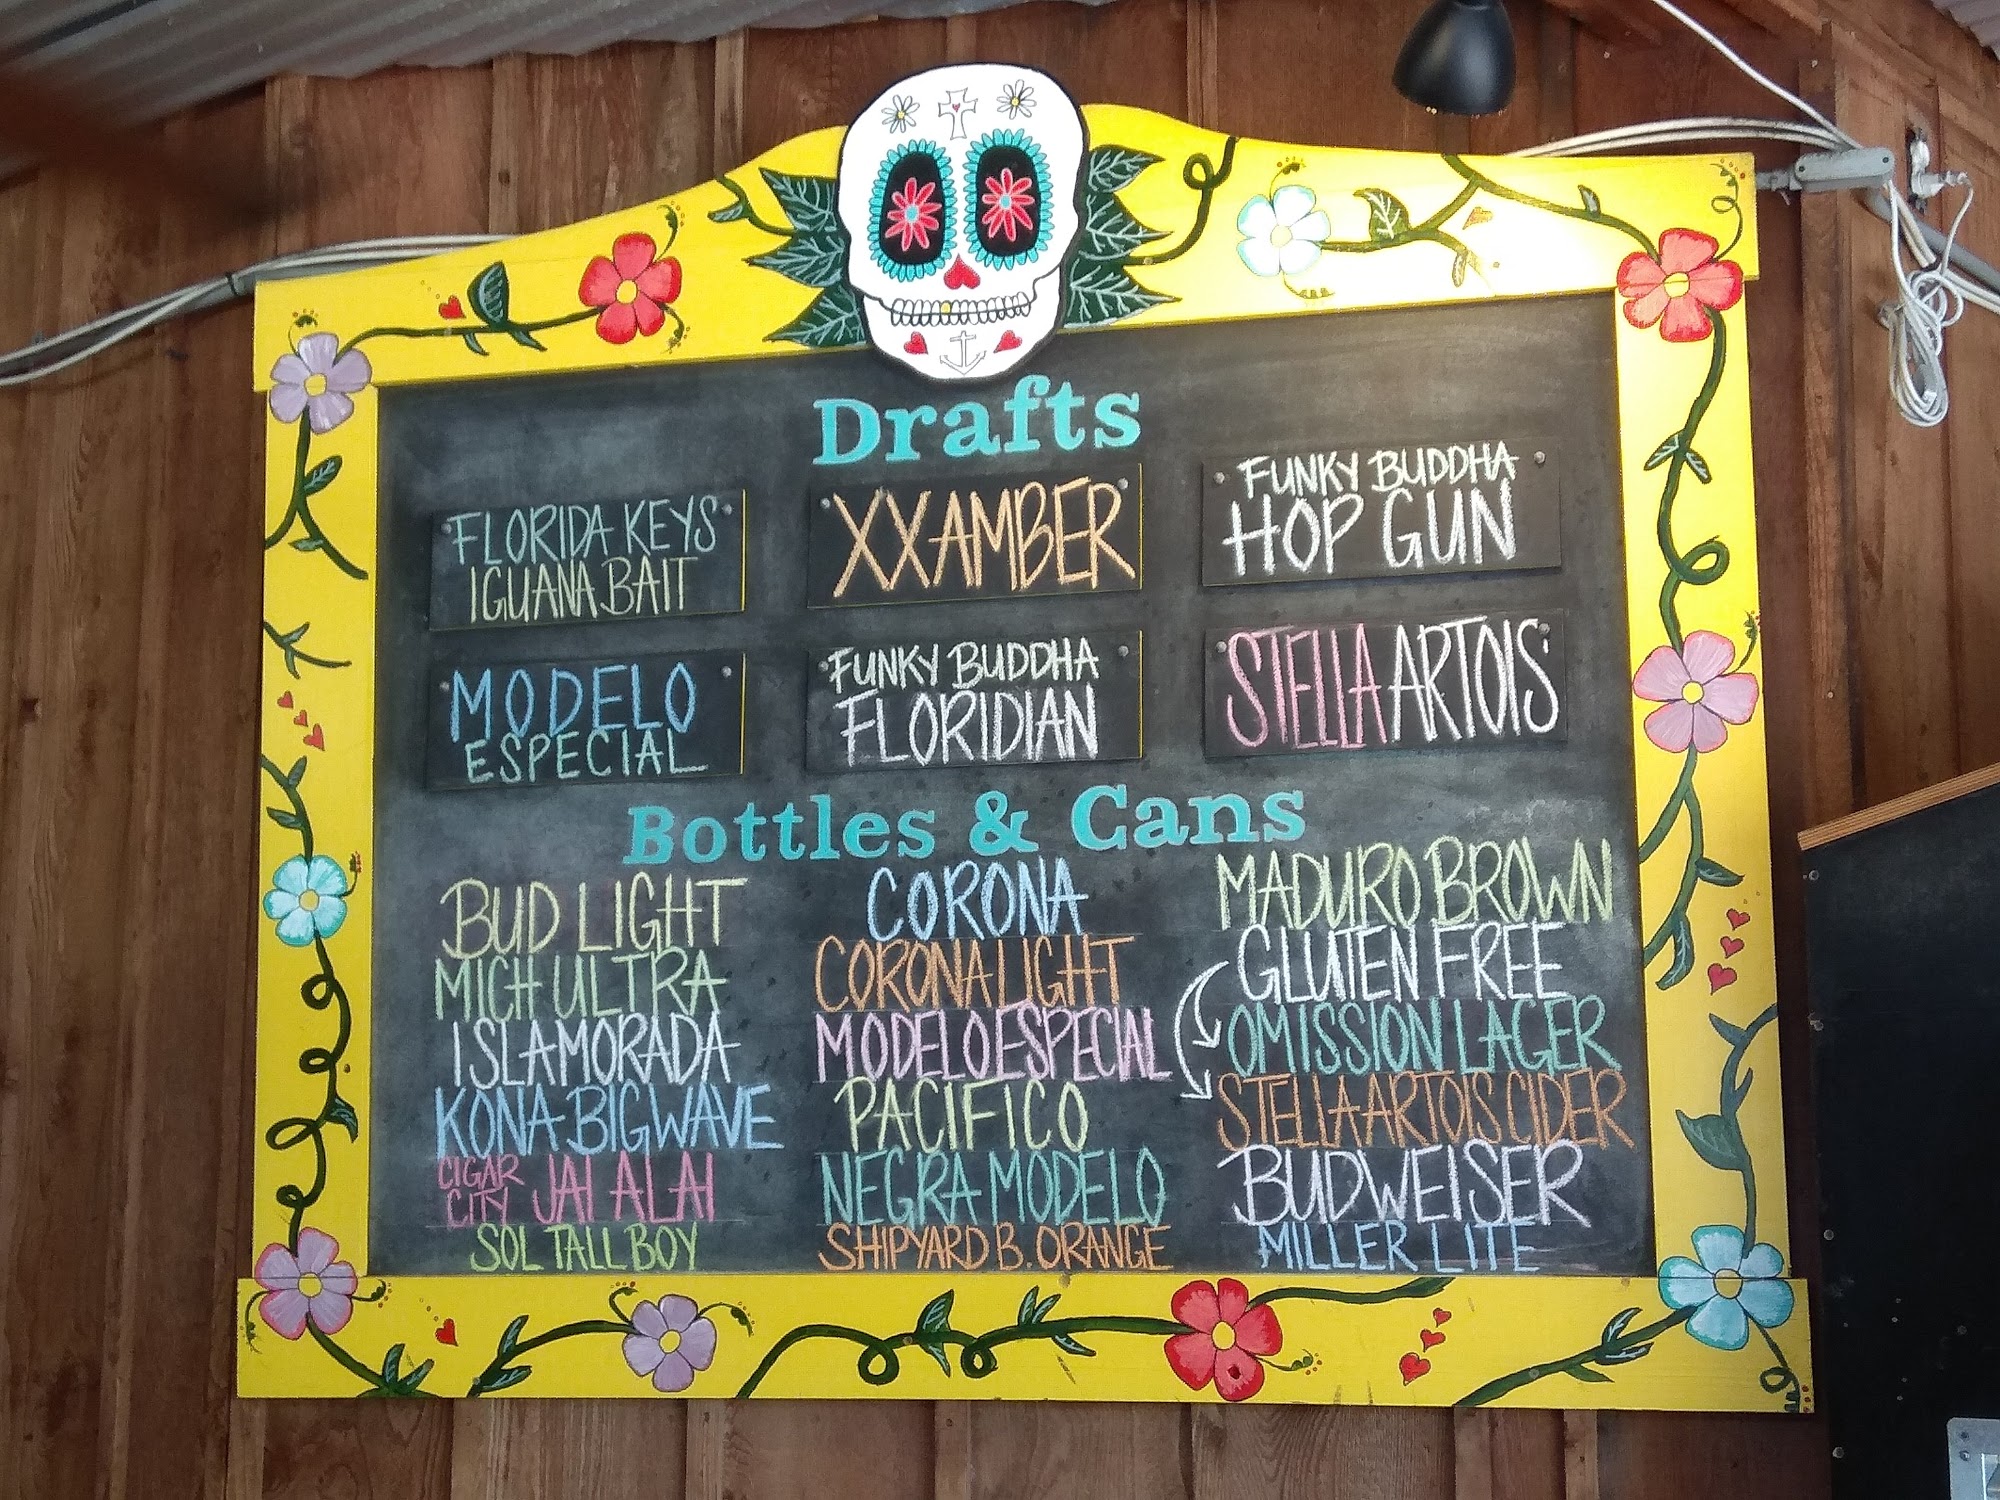 Drafts
FLORIDA KEYS
IGUANA BAIT
XX AMBER
FUNKY BUDDHA
HOP GUN
MODELO
ESPECIAL
FUNKY BUDDHA
FLORIDIAN
STELLA ARTOIS
Bottles & Cans
BUD LIGHT
MICH ULTRA
ISLAMORADA
KONA BIG WAVE
CIGAR CITY JAI ALAI
SOL TALL BOY
CORONA
CORONA LIGHT
MODELO ESPECIAL
PACIFICO
NEGRA MODELO
SHIPYARD B. ORANGE
MADURO BROWN
GLUTEN FREE
OMISSION LAGER
STELLA ARTOIS CIDER
BUDWEISER
MILLER LITE